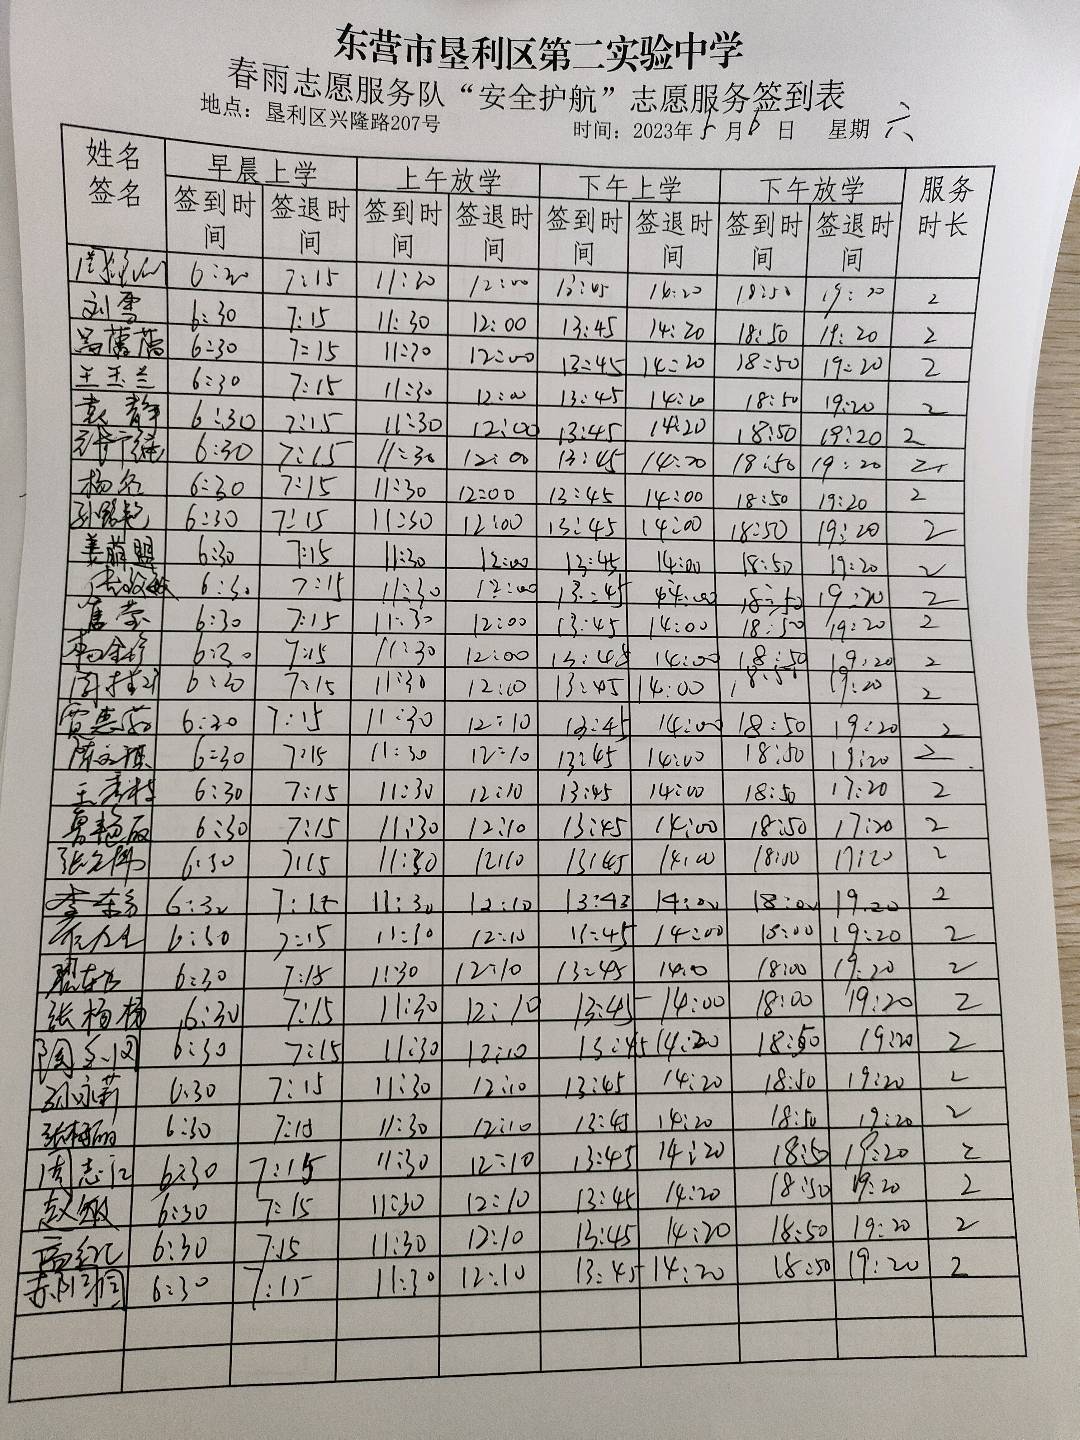 东营市垦利区第二实验中学
春雨志愿服务队“安全护航”志愿服务签到表
地点：垦利区兴隆路207号 时间：2023年5月6日 星期六
姓名签名 早晨上学 上午放学 下午上学 下午放学 服务时长
签到时间 签退时间 签到时间 签退时间 签到时间 签退时间 签到时间 签退时间
7:15 12:00 14:20 18:50 19:20 2
刘雪 6:30 7:15 11:30 12:00 13:45 14:20 18:50 19:20 2
6:30 7:15 11:30 12:00 13:45 14:20 18:50 19:20 2
王玉兰 6:30 7:15 11:30 12:00 13:45 14:20 18:50 19:20 2
袁静 6:30 7:15 11:30 12:00 13:45 14:20 18:50 19:20 2
6:30 7:15 11:30 12:00 13:45 14:20 18:50 19:20 2
杨名 6:30 7:15 11:30 12:00 13:45 14:00 18:50 19:20 2
6:30 7:15 11:30 12:00 13:45 14:00 18:50 19:20 2
姜萌盟 6:30 7:15 11:30 12:00 13:45 14:00 18:50 19:20 2
6:30 7:15 11:30 12:00 13:45 14:00 18:50 19:20 2
6:30 7:15 11:30 12:00 13:45 14:00 18:50 19:20 2
6:30 7:15 11:30 12:00 13:45 14:00 18:50 19:20 2
7:15 11:30 12:00 13:45 14:00 19:20 2
贾惠 7:15 11:30 12:10 13:45 14:00 18:50 19:20 2
6:30 7:15 11:30 12:10 13:45 14:00 18:50 19:20 2
王秀梅 6:30 7:15 11:30 12:10 13:45 14:00 18:50 17:20 2
6:30 7:15 11:30 12:10 13:45 14:00 18:50 17:20 2
6:30 7:15 11:30 12:10 13:45 14:00 18:00 17:20 2
李 6:30 7:15 11:30 12:10 13:43 14:00 18:00 19:20 2
6:30 7:15 11:30 12:10 11:45 14:00 18:00 19:20 2
6:30 7:15 11:30 12:10 13:45 18:00 19:20 2
张杨杨 6:30 7:15 11:30 12:10 13:45 14:00 18:00 19:20 2
6:30 7:15 11:30 12:10 13:45 14:20 18:50 19:20 2
孙咏莉 6:30 7:15 11:30 12:10 13:45 14:20 18:50 19:20 2
6:30 7:15 11:30 12:10 13:45 14:20 18:50 19:20 2
周志江 6:30 7:15 11:30 12:10 13:45 14:20 18:50 19:20 2
赵敏 6:30 7:15 11:30 12:10 13:45 14:20 18:50 19:20 2
高红 6:30 7:15 11:30 12:10 13:45 14:20 18:50 19:20 2
6:30 7:15 11:30 12:10 13:45 14:20 18:50 19:20 2